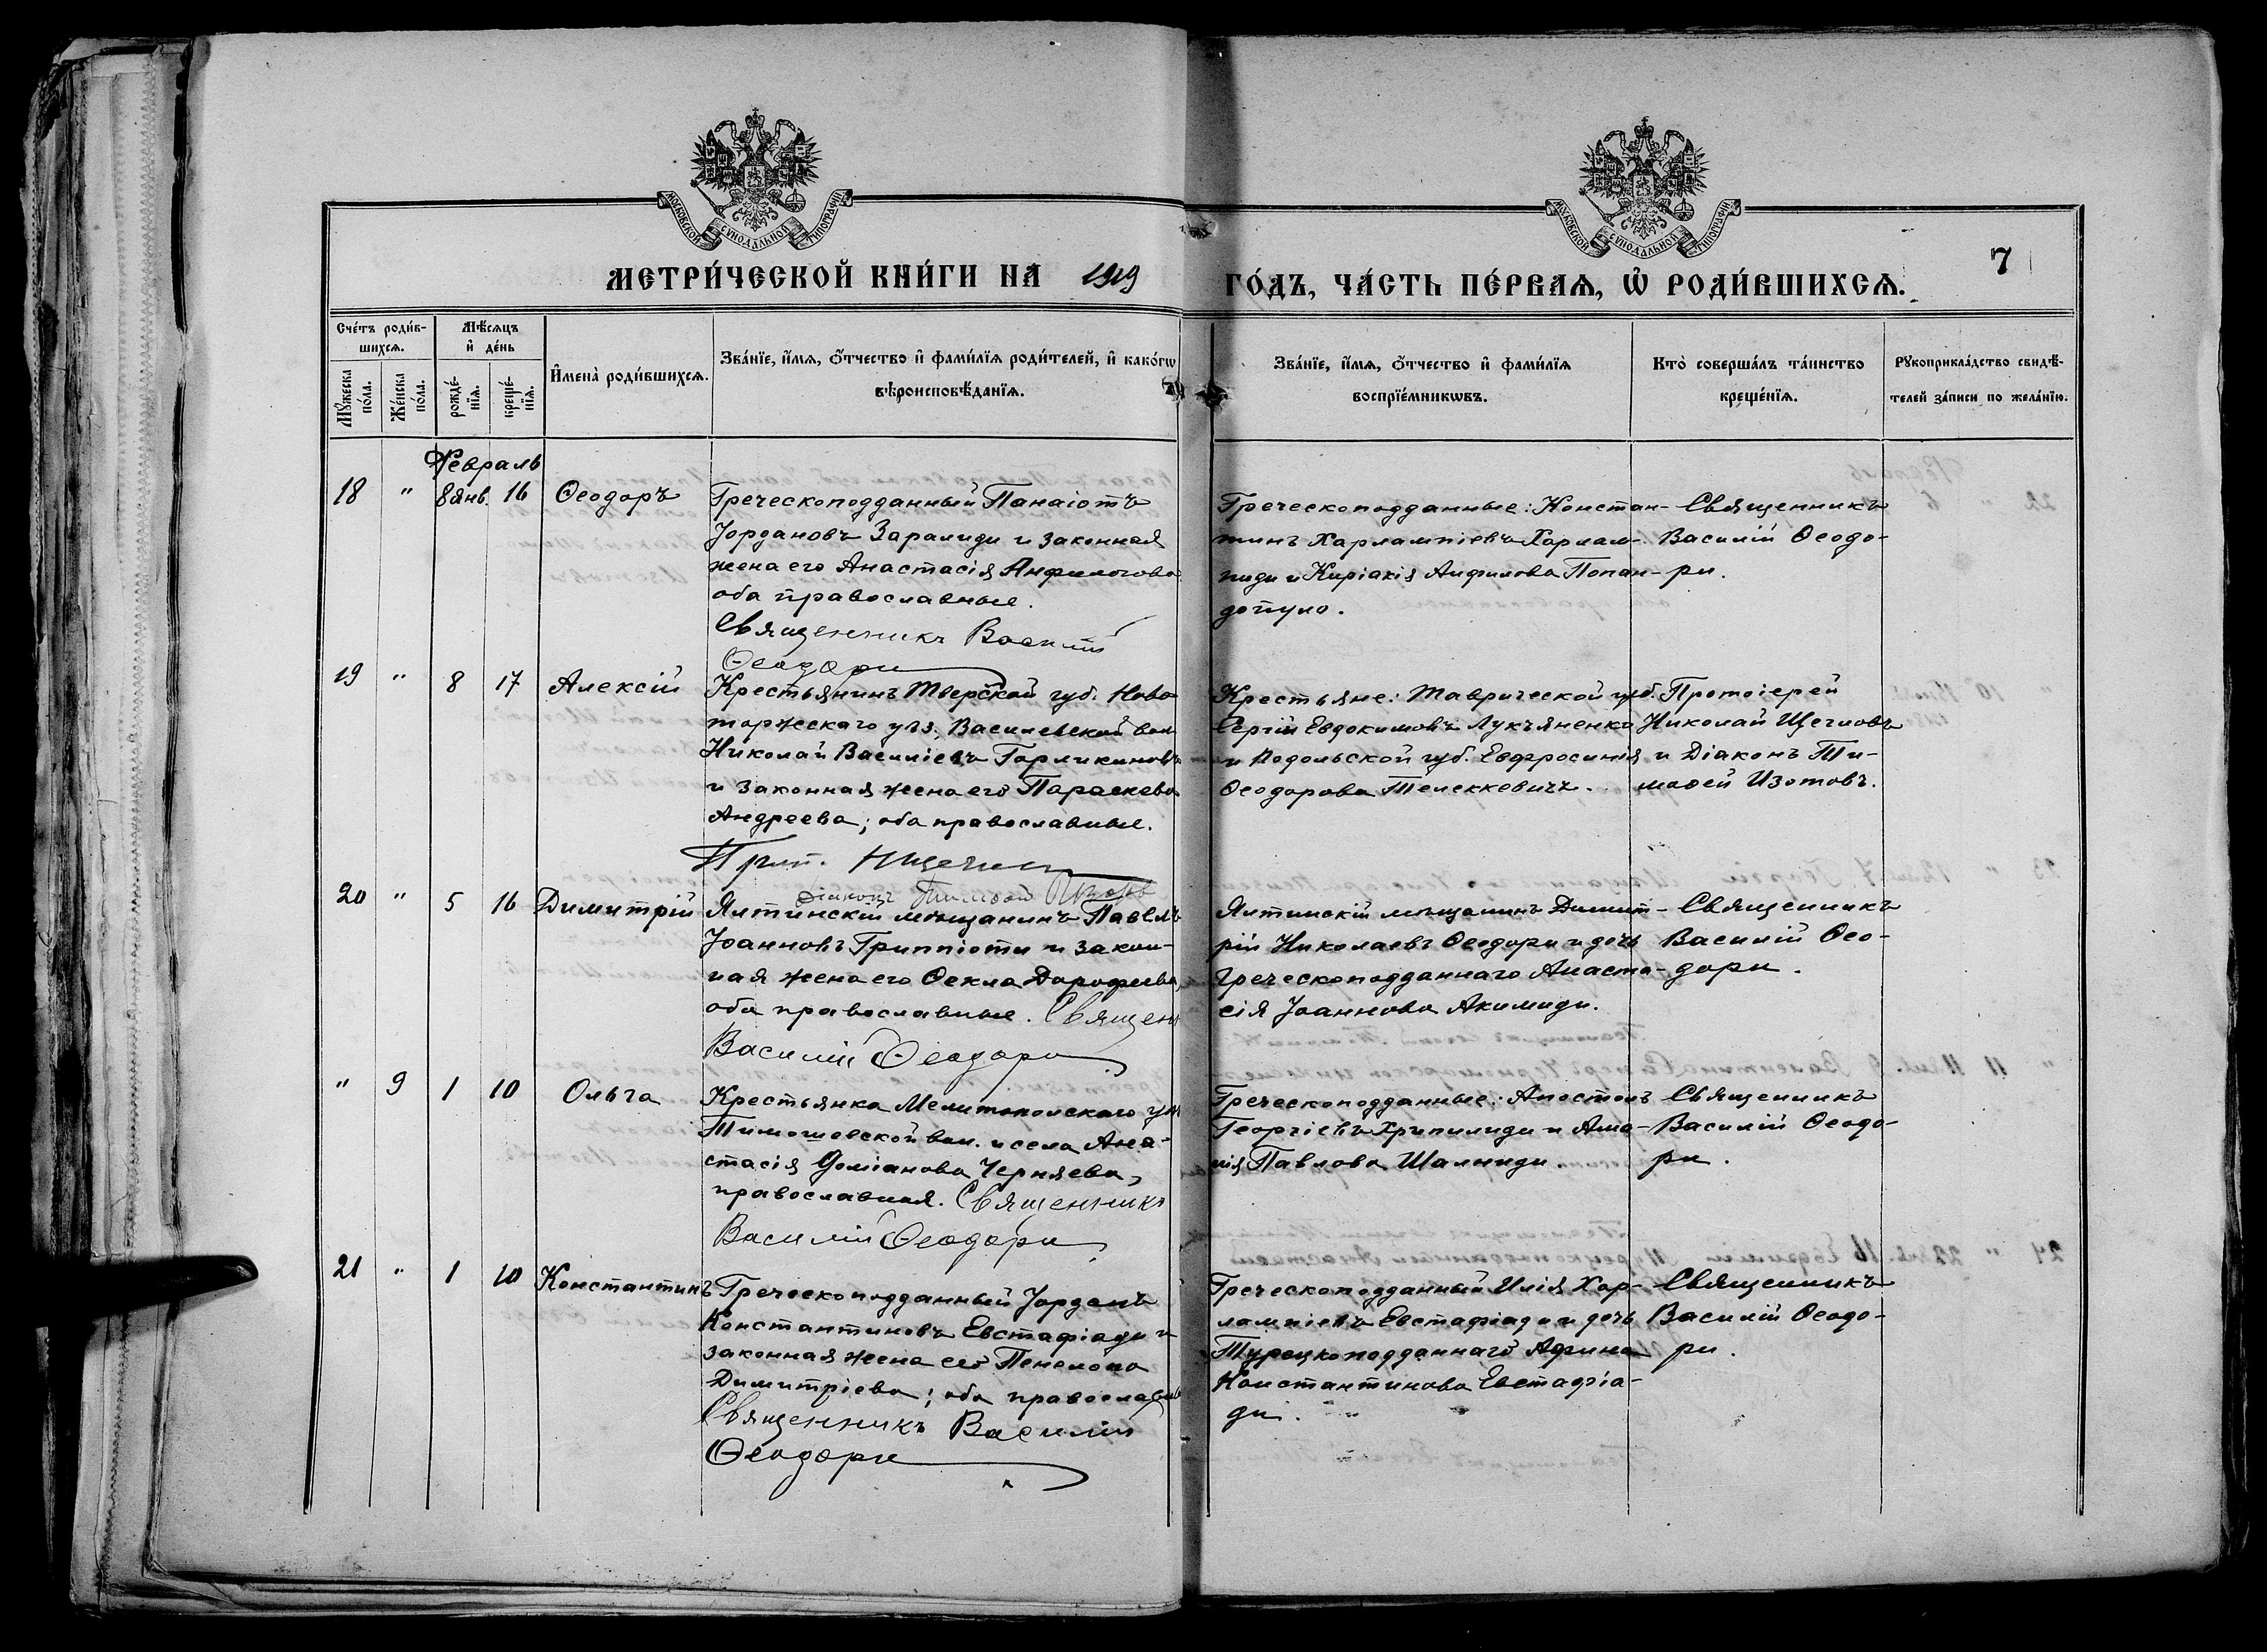 МОСКОВСКОЙ СѴНОДАЛЬНОЙ ТИПОГРАФІИ
МОСКОВСКОЙ СѴНОДАЛЬНОЙ ТИПОГРАФІИ
МЕТРИ́ЧЕСКОЙ КНИ́ГИ НА 1919 ГО́ДЪ, ЧА́СТЬ ПЕ́РВАѦ, Ѡ РОДИ́ВШИХСѦ.
7
Сче́тъ роди́в-
шихсѧ.
Мꙋ́жеска
по́ла.
Же́нска
по́ла.
Мѣ́сѧцъ
и҆ де́нь
рожде́-
нїѧ.
креще́-
нїѧ.
И҆мена̀ роди́вшихсѧ.
Зва́нїе, и҆́мѧ, ѻ҆́тчество и҆ фами́лїѧ роди́телей, и҆ како́гѡ
вѣроисповѣ́данїѧ.
Зва́нїе, и҆́мѧ, ѻ҆́тчество и҆ фами́лїѧ
воспрїе́мникѡвъ.
Кто̀ соверша́лъ та́инство
креще́нїѧ.
Рꙋкоприкла́дство свидѣ́-
телей за́писи по жела́нїю.
Февраль
18 " 8 янв. 16 Ѳеодоръ
Греческоподданный Панаіотъ
Іордановъ Заралиди и законная
жена его Анастасія Анфилогова
оба православные.
Священникъ Василій
Ѳеодори
Греческоподданные: Констан-
тинъ Харлампіевъ Харлам-
пиди и Киріакія Анфимова Попан-
допуло.
Священникъ
Василій Ѳеодо-
ри.
19 " 8 17 Алексій
Крестьянинъ Тверской губ. Ново
торжескаго уѣз., Василевской вол
Николай Василіевъ Горликиновъ
и законная жена его Параскева
Андреева; оба православные.
Прот. Н Щеглов
Діаконъ Тимофей Изотов
Крестьяне: Таврической губ.
Сергій Евдокимовъ Лукъяненко
и Подольской губ. Евфросинія
Ѳеодорова Телеккевичъ.
Протоіерей
Николай Щегловъ
и Діаконъ Ти-
моѳей Изотовъ.
20 " 5 16 Димитрій
Ялтинскій мѣщанинъ Павелъ
Іоанновъ Триппіоти и закон-
ная жена его Ѳекла Дорофеева,
оба православные. Священ
Василій Ѳеодори
Ялтинскій мѣщанинъ Димит-
рій Николаевъ Ѳеодори и дочь
греческоподданнаго Анаста-
сія Іоаннова Акимиди.
Священникъ
Василій Ѳео-
дори.
" 9 1 10 Ольга
Крестьянка Мелитопольскаго уѣз
Тимошевской вол. и села Ана-
стасія Доміанова Черняева,
православная. Священникъ
Василій Ѳеодори
Греческоподданные: Апостолъ
Георгіевъ Хрипилиди и Ама-
лія Павлова Шалниди.
Священникъ
Василій Ѳеодо-
ри.
21 " 1 10 Константинъ
Греческоподданный Іорданъ
Константиновъ Евстафіади и
законная жена его Пенелопа
Димитріева; оба православн
Священникъ Василій
Ѳеодори
Греческоподданный Илія Хар-
лампіевъ Евстафіади и дочь
Турецкоподданнаго Афина
Константинова Евстафіа-
ди.
Священникъ
Василій Ѳеодо-
ри.